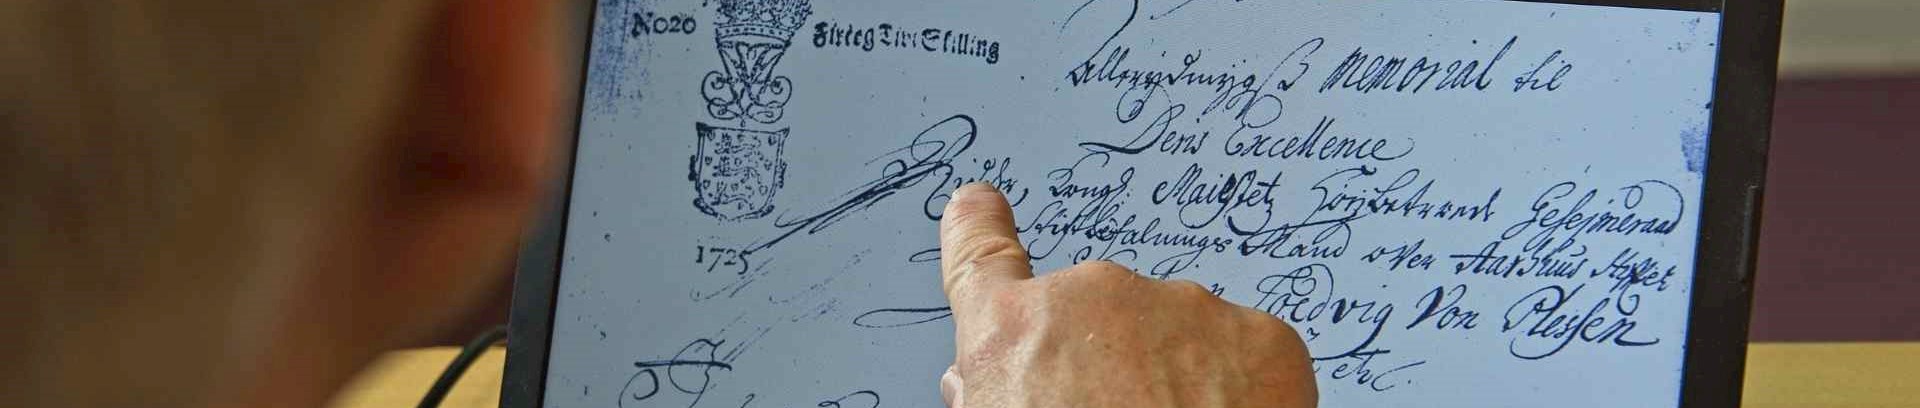 No20 Fireog Tive Skilling
Allerydmygß Memorial til
Deris Excellence
Ridder, Kongl: Maigstet Høybetroede Geheimeraad
Stiftbefalnings Mand over Aarhuus Stiftet
1725
Ludvig Von Plessen
etc.